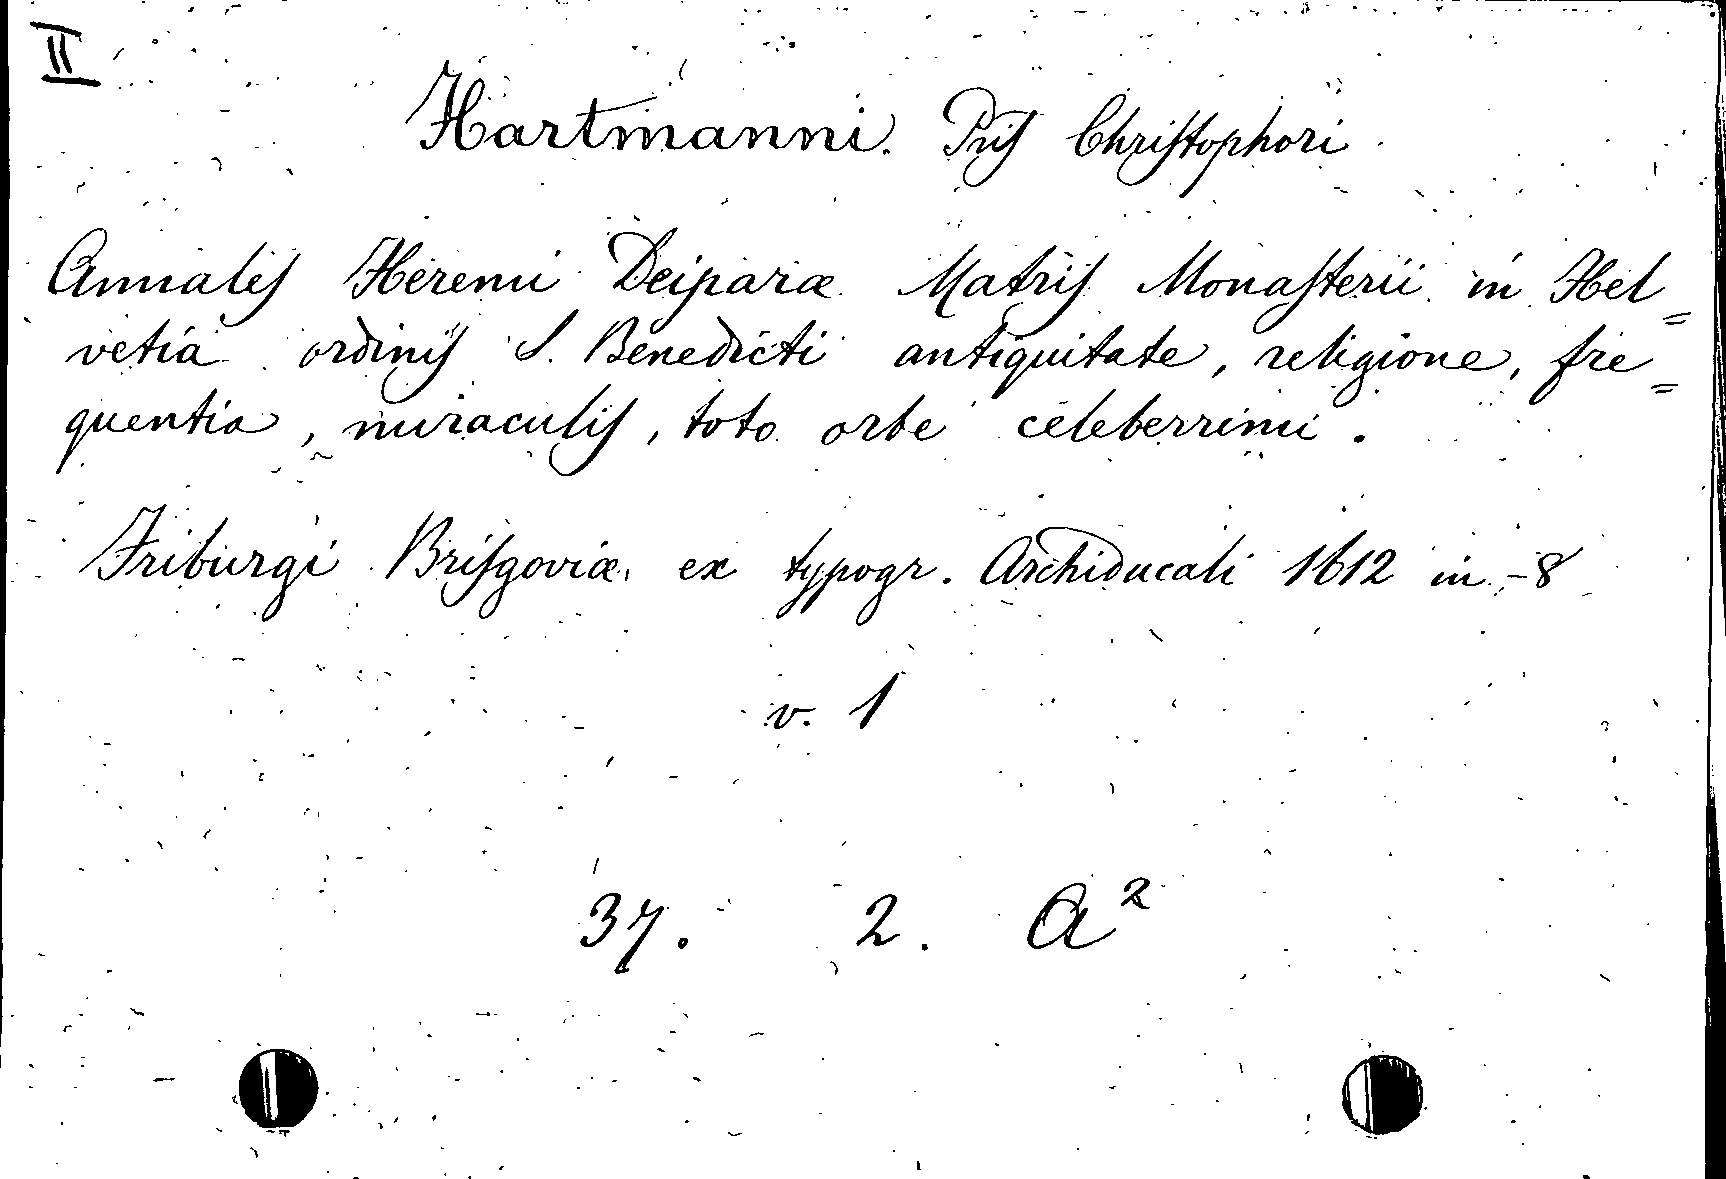 II
Hartmanni. Pris Christophori
Annales Heremi Deiparæ Matris Monasterii in Hel=
vetia ordinis S. Benedicti antiquitate, religione, fre=
quentia, miraculis, toto orbe celeberrimi.
Friburgi Brisgoviæ, ex typogr. Archiducali 1612 in-8
v. 1
37. 2. A²